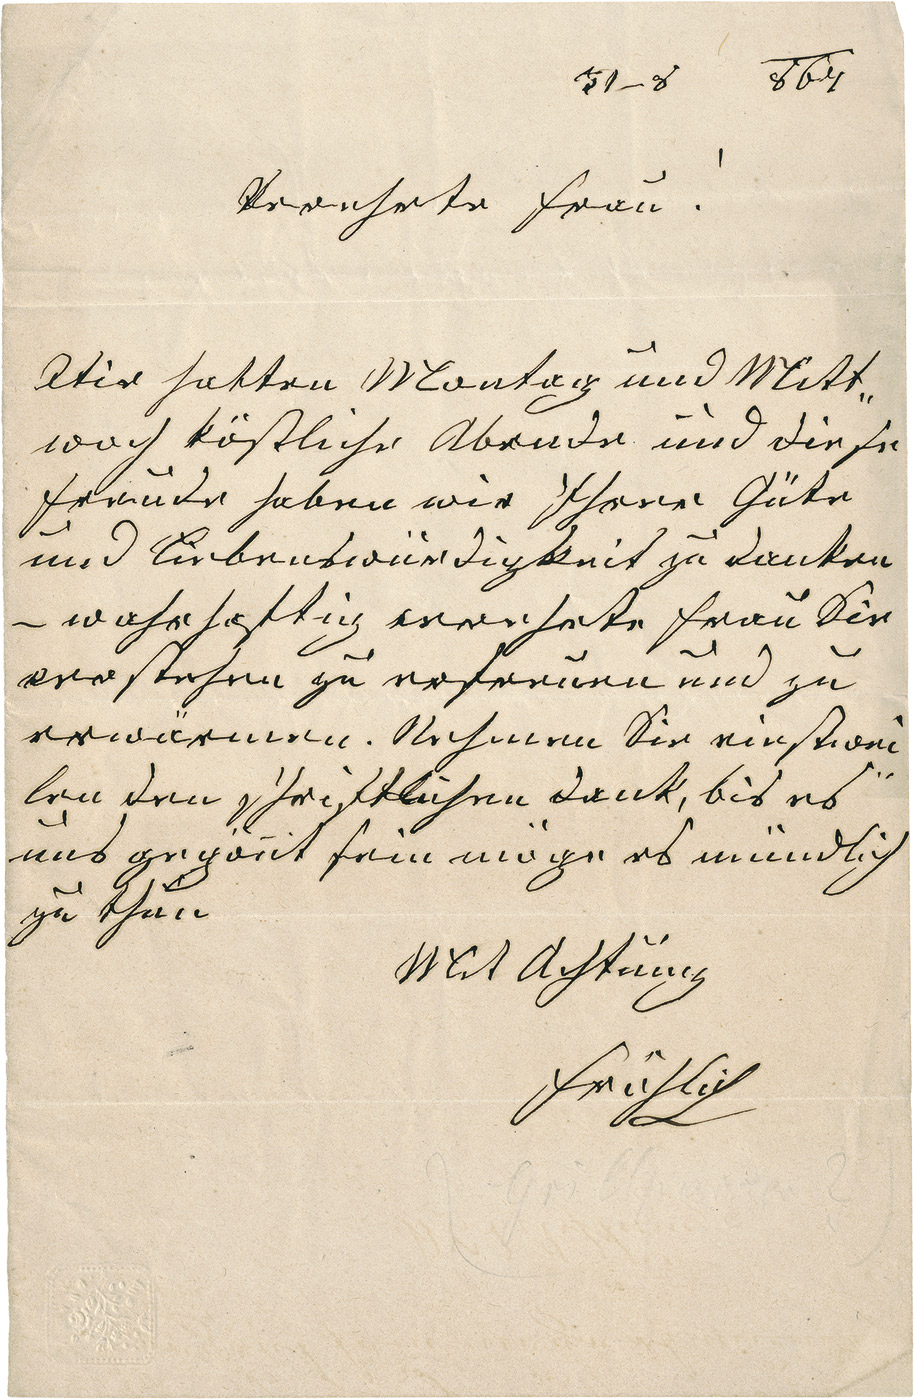 31–8 864
Verehrte Frau!
Wir hatten Montag und Mitt„
woch köstliche Abende und diese
Freude haben wir Ihrer Güte
und Liebenswürdigkeit zu danken
– wahrhaftig verehrte Frau Sie
verstehen zu erfreuen und zu
erwärmen. Nehmen Sie einstwei„
len den schriftlichen Dank, bis es
uns gegönt sein möge es mündlich
zu thun
Mit Achtung
Fröhlich